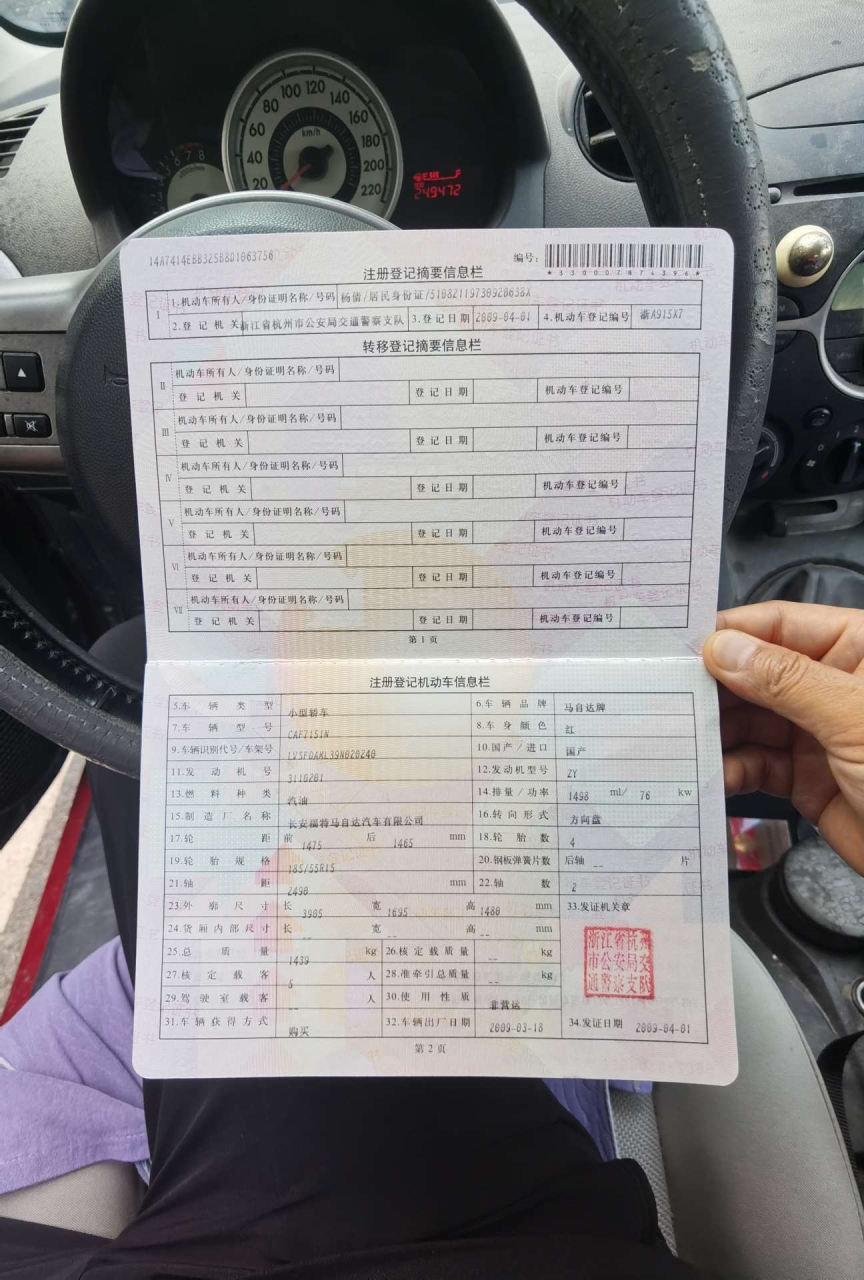 80 100 120
60 140
40 160
20 180
200
220
km/h
6 7 8
F
249472
14A7414EBB325B801063756
编号:
*330007874396*
注册登记摘要信息栏
I 1.机动车所有人/身份证明名称/号码 杨倩/居民身份证/51082119730920638X
2.登记机关 浙江省杭州市公安局交通警察支队 3.登记日期 2009-04-01 4.机动车登记编号 浙A915X7
转移登记摘要信息栏
II 机动车所有人/身份证明名称/号码
登记机关 登记日期 机动车登记编号
III 机动车所有人/身份证明名称/号码
登记机关 登记日期 机动车登记编号
IV 机动车所有人/身份证明名称/号码
登记机关 登记日期 机动车登记编号
V 机动车所有人/身份证明名称/号码
登记机关 登记日期 机动车登记编号
VI 机动车所有人/身份证明名称/号码
登记机关 登记日期 机动车登记编号
VII 机动车所有人/身份证明名称/号码
登记机关 登记日期 机动车登记编号
第1页
注册登记机动车信息栏
5.车辆类型 小型轿车 6.车辆品牌 马自达牌
7.车辆型号 CAF7151N 8.车身颜色 红
9.车辆识别代号/车架号 LVSFDAKL39N020240 10.国产/进口 国产
11.发动机号 3110201 12.发动机型号 ZY
13.燃料种类 汽油 14.排量/功率 1498 ml/ 76 kw
15.制造厂名称 长安福特马自达汽车有限公司 16.转向形式 方向盘
17.轮距 前 1475 后 1465 mm 18.轮胎数 4
19.轮胎规格 185/55R15 20.钢板弹簧片数 后轴 -- 片
21.轴距 2490 mm 22.轴数 2
23.外廓尺寸 长 3905 宽 1695 高 1480 mm 33.发证机关章
24.货厢内部尺寸 长 -- 宽 -- 高 -- mm
25.总质量 1439 kg 26.核定载质量 -- kg
27.核定载客 5 人 28.准牵引总质量 -- kg
29.驾驶室载客 -- 人 30.使用性质 非营运
31.车辆获得方式 购买 32.车辆出厂日期 2009-03-18 34.发证日期 2009-04-01
浙江省杭州
市公安局交
通警察支队
第2页